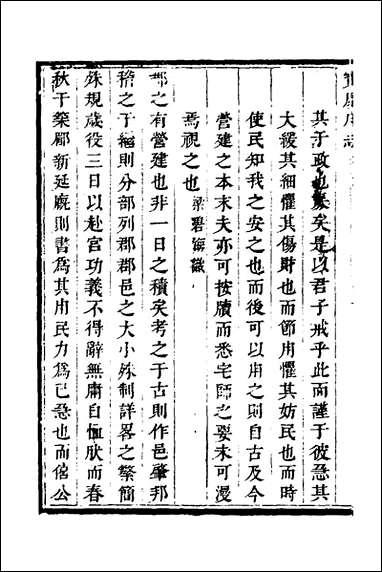 寶慶府志
其于政也㤗矣是以君子戒乎此而謹于彼急其
大緩其細懼其傷財也而節用懼其妨民也而時
使民知我之安之也而後可以用之則自古及今
營建之本末夫亦可按牘而悉宅師之要未可漫
焉視之也 梁碧海徽
郡之有營建也非一日之積矣考之于古則作邑肇邦
稽之于經則分部列郡郡邑之大小殊制詳畧之繁簡
殊規歲役三日以赴官功義不得辭無庸自恤欣而春
秋于築郿新延廐則書為其用民力為已急也而僖公